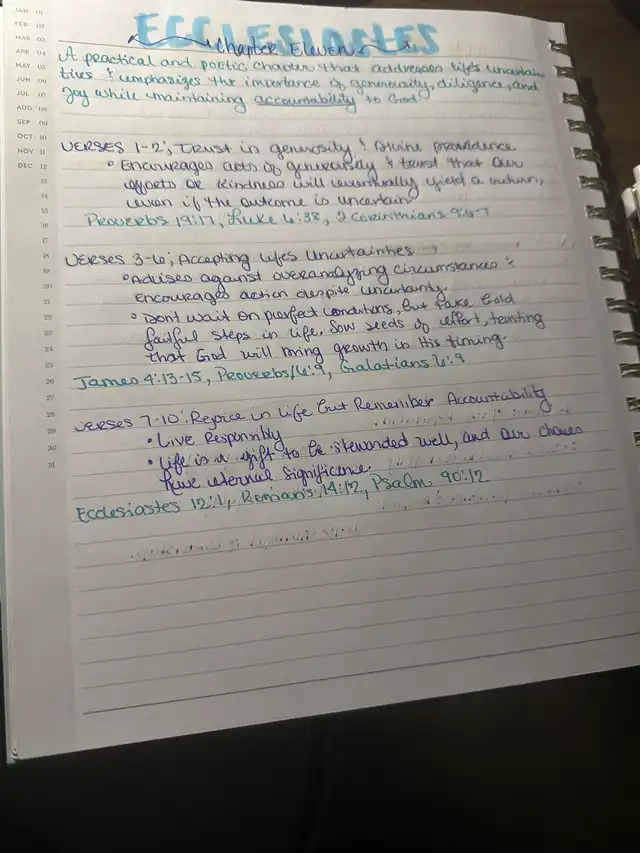 JAN 01
FEB 02
MAR 03
APR 04
MAY 05
JUN 06
JUL 07
AUG 08
SEP 09
OCT 10
NOV 11
DEC 12
13
14
15
16
17
18
19
20
21
22
23
24
25
26
27
28
29
30
31
ECCLESIASTES
Chapter Eleven
A practical and poetic chapter that addresses life's uncertain-
ties & emphasizes the importance of generosity, diligence, and
Joy while maintaining accountability to God.
VERSES 1-2; Trust in generosity & Divine providence
Encourages acts of generosity & trust that our
efforts or kindness will eventually yield a return,
even if the outcome is uncertain
Proverbs 19:17, Luke 6:38, 2 Corinthians 9:6-7
VERSES 3-6; Accepting Life's Uncertainties
Advises against overanalyzing circumstances &
encourages action despite uncertainty.
Dont wait on perfect conditions, but take bold
faithful steps in life. Sow seeds of effort, trusting
that God will bring growth in His timing.
James 4:13-15, Proverbs 16:9, Galatians 6:9
VERSES 7-10: Rejoice in Life but Remember Accountability
Live Responsibly
Life is a gift to be stewarded well, and our choices
have eternal significance
Ecclesiastes 12:1, Romans 14:12, Psalm 90:12